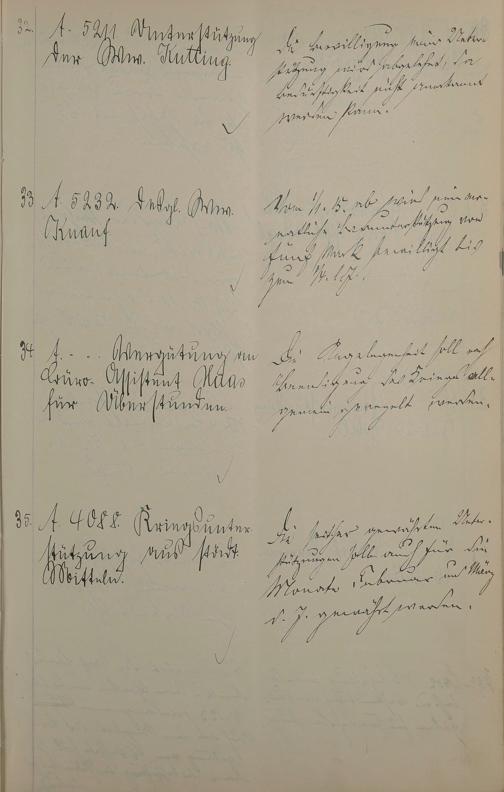 32. A. 5211 Unterstützung
der Ww. Kutting.
Die Bewilligung einer Unter-
stützung wird abgelehnt, da
Bedürftigkeit nicht anerkannt
werden kann.
33 A. 5232. Desgl. Ww.
Knauf
Vom 1/1. 15. ab wird eine mo-
natliche Armenunterstützung von
fünf Mark bewilligt bis
zum 1/4. l. J.
34 A. - . . Vergütung an
Büro-Assistent Haas
für Überstunden.
Die Angelegenheit soll nach
Beendigung des Krieges all-
gemein geregelt werden.
35. A. 4088. Kriegsunter-
stützung aus städt.
Mitteln.
Die seither gewährten Unter-
stützungen soll auch für die
Monate Februar und März
d. J. gewährt werden.